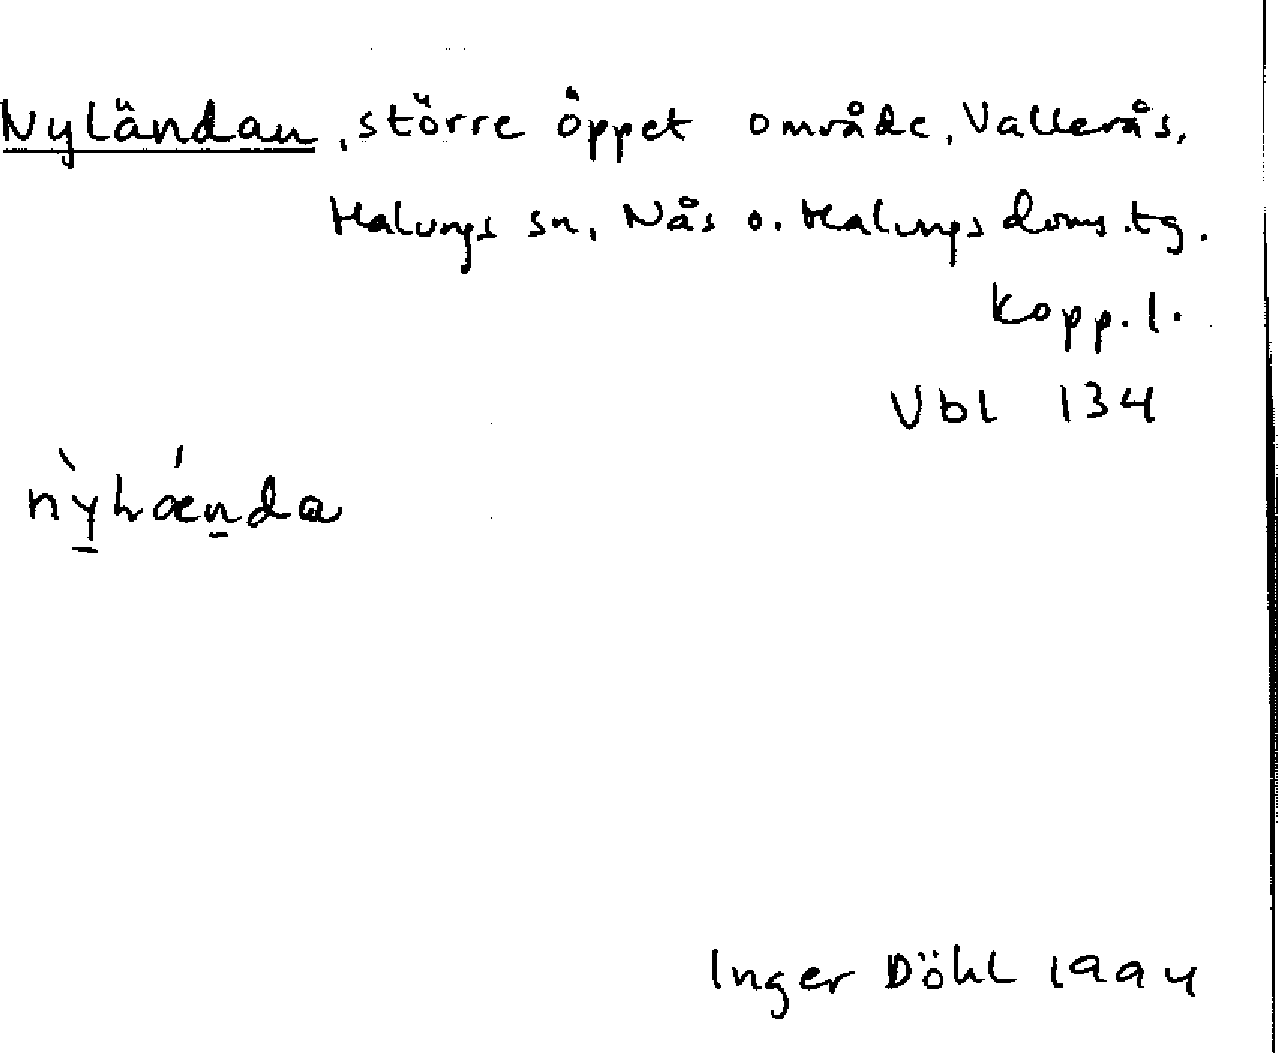 Nyländan, större öppet område, Vallerås,
Malungs sn, Nås o. Malungs doms.tg.
Kopp.l.
Vbl 134
Inger Döhl 1994